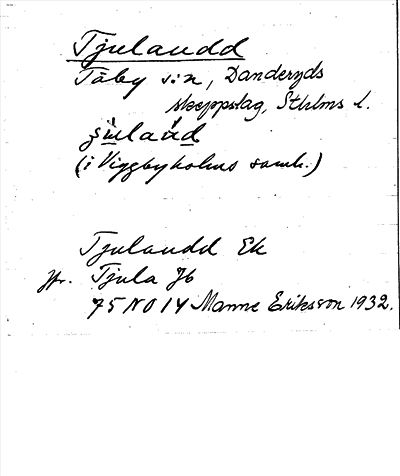 Tjulaudd
Täby sn, Danderyds
skeppslag, Sthlms l.
(i Viggbyholms samh.)
Tjulaudd Ek
jfr. Tjula Jb
75 NO 14 Manne Eriksson 1932.